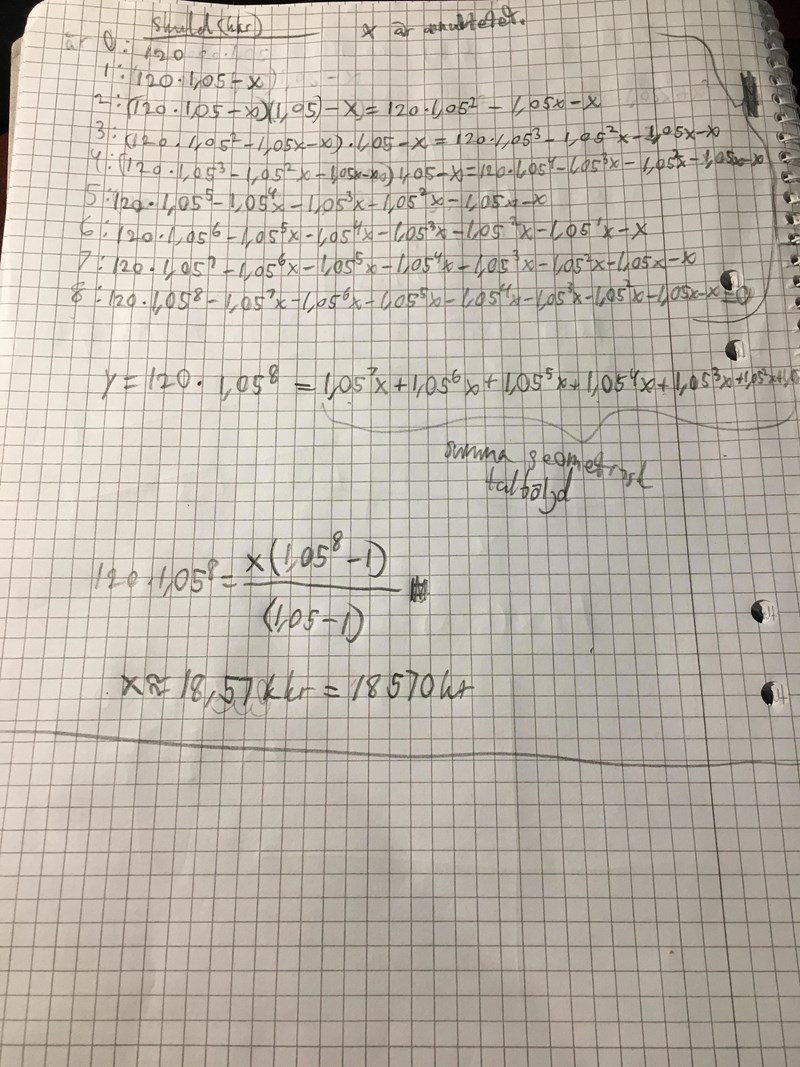 Skuld (kkr) x är annuiteten.
år 0: 120
1: (120·1,05-x)
2: (120·1,05-x)(1,05)-x = 120·1,05² - 1,05x-x
3: (120·1,05²-1,05x-x)·1,05-x = 120·1,05³-1,05²x-1,05x-x
4: (120·1,05³-1,05²x-1,05x-x)1,05-x=120·1,05⁴-1,05³x-1,05²x-1,05x-x
5: 120·1,05⁵-1,05⁴x-1,05³x-1,05²x-1,05x-x
6: 120·1,05⁶-1,05⁵x-1,05⁴x-1,05³x-1,05²x-1,05¹x-x
7: 120·1,05⁷-1,05⁶x-1,05⁵x-1,05⁴x-1,05³x-1,05²x-1,05x-x
8: 120·1,05⁸-1,05⁷x-1,05⁶x-1,05⁵x-1,05⁴x-1,05³x-1,05²x-1,05x-x=0
120·1,05⁸ = 1,05⁷x+1,05⁶x+1,05⁵x+1,05⁴x+1,05³x+1,05²x+1,0
summa geometrisk
talföljd
120·1,05⁸ = x(1,05⁸-1)
(1,05-1)
x≈18,57kkr = 18570kr